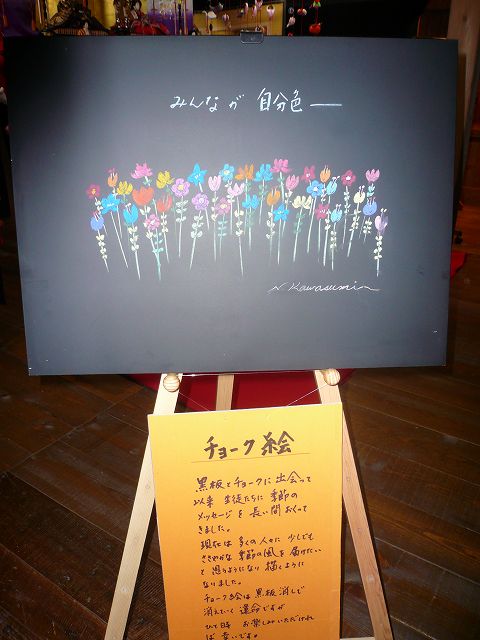 みんなが 自分色―
N. Kawasumi
チョーク絵
黒板とチョークに出会って
以来 生徒たちに季節の
メッセージを長い間おくって
きました。
現在は多くの人々に少しでも
ささやかな季節の風を届けたい
と思うようになり描くように
なりました。
チョーク絵は黒板消しで
消えていく運命ですが
ひと時 お楽しみいただけれ
ば幸いです。